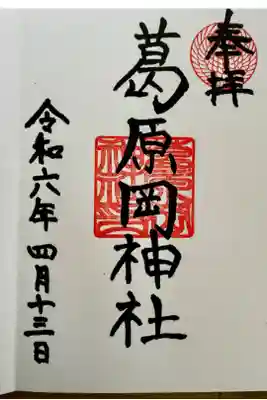 奉拝
葛原岡神社
令和六年 四月十三日